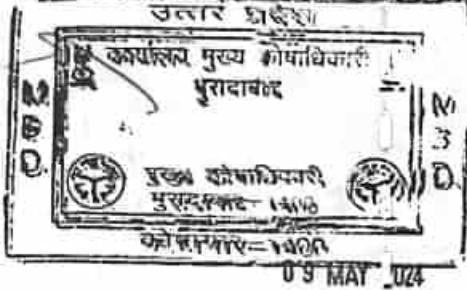 उत्तर प्रदेश
कार्यालय मुख्य कोषाधिकारी
मुरादाबाद
MBD.
MBD.
मुख्य कोषाधिकारी
मुरादाबाद
09 MAY 024